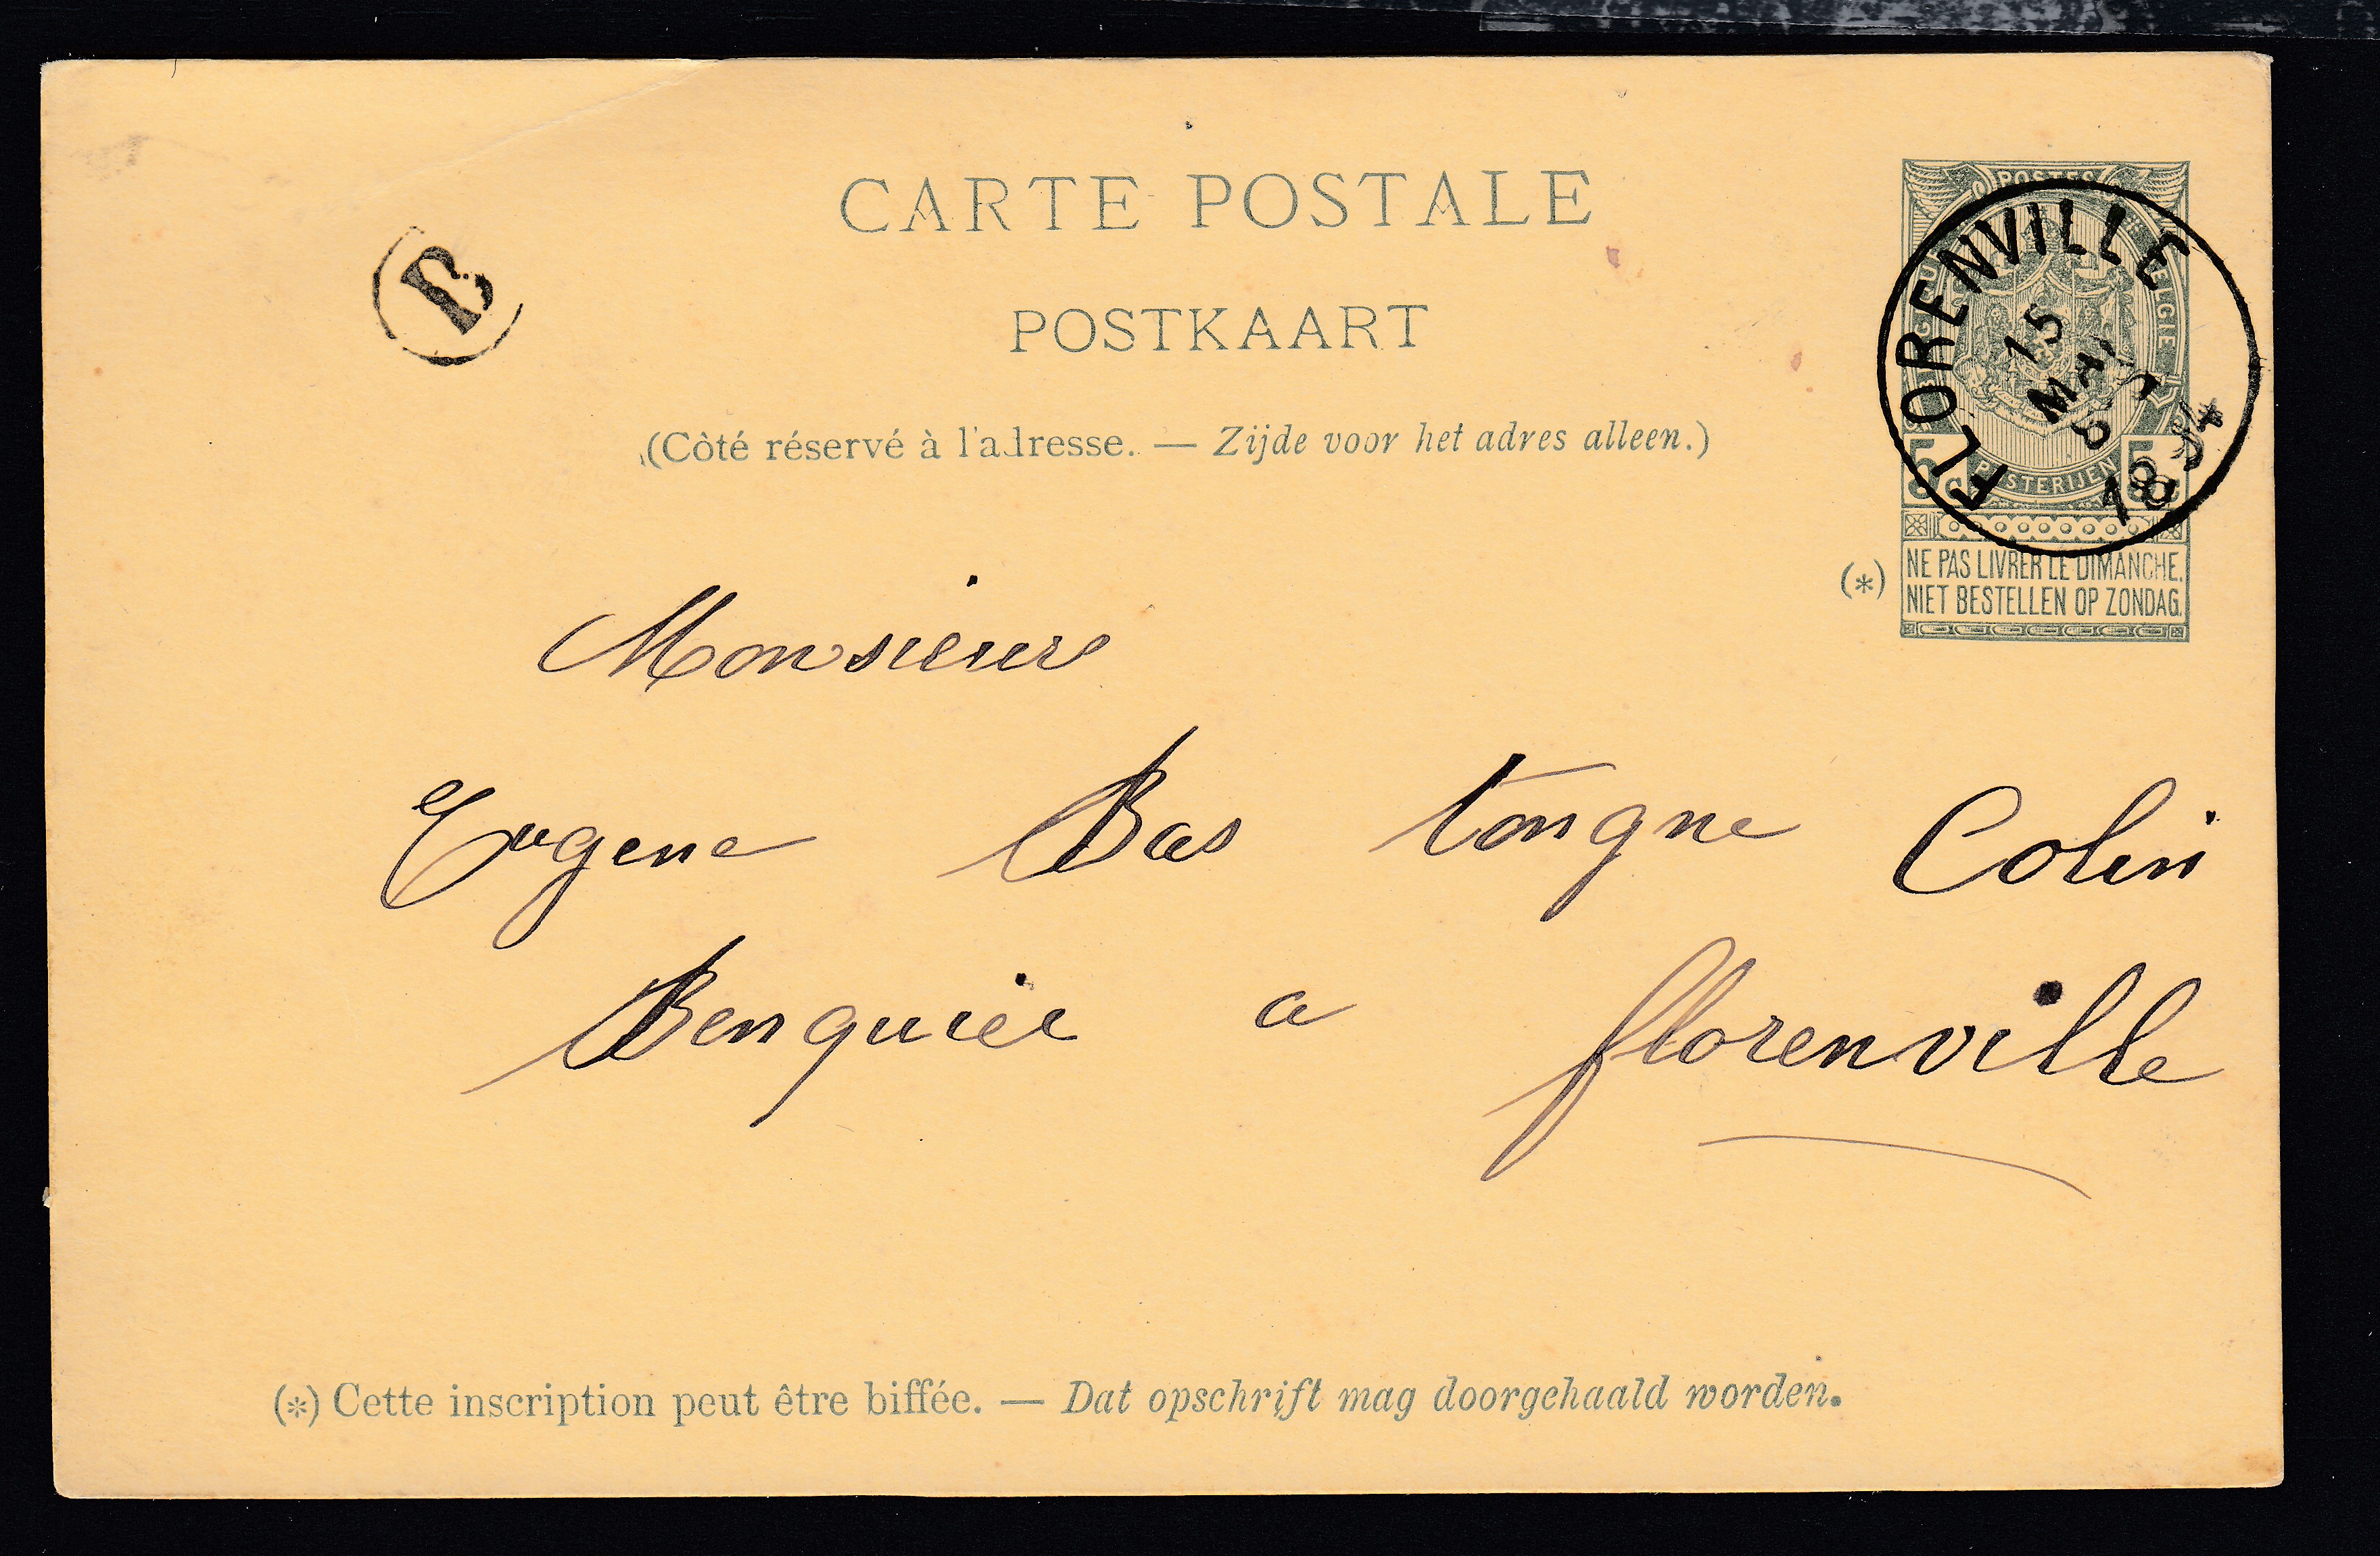 CARTE POSTALE
POSTKAART
(Côté réservé à l'adresse. — Zijde voor het adres alleen.)
B
POSTES
BELGIE
POSTERIJEN
5c 5c
FLORENVILLE
15
MAI
1894
(*)
NE PAS LIVRER LE DIMANCHE.
NIET BESTELLEN OP ZONDAG.
Monsieur
Eugene Bas tongne Colin
Benquier a florenville
(*) Cette inscription peut être biffée. — Dat opschrift mag doorgehaald worden.